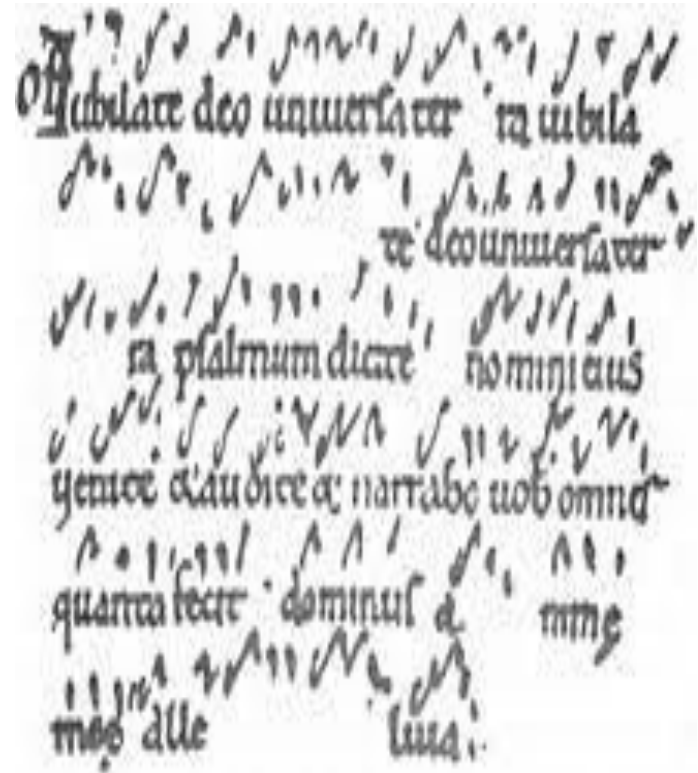 Off Iubilate deo uniuersa ter ra iubila
te deo uniuersa ter
ra psalmum dicite nomini eius
uenite & audite & narrabo uob omnis
quanta fecit dominus a nime
meę alle luia.